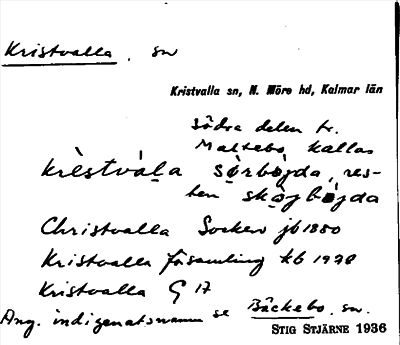 Kristvalla, sn
Kristvalla sn, N. Möre hd, Kalmar län
Södra delen fr.
Maltebo, kallas
krèstvàla sörbögda, res-
ten skògbögda
Christvalla Socken jb 1880
Kristvalla församling kb 1928
Kristvalla G 17
Ang. indigenatsnamn se Bäckebo, sn.
STIG STJÄRNE 1936